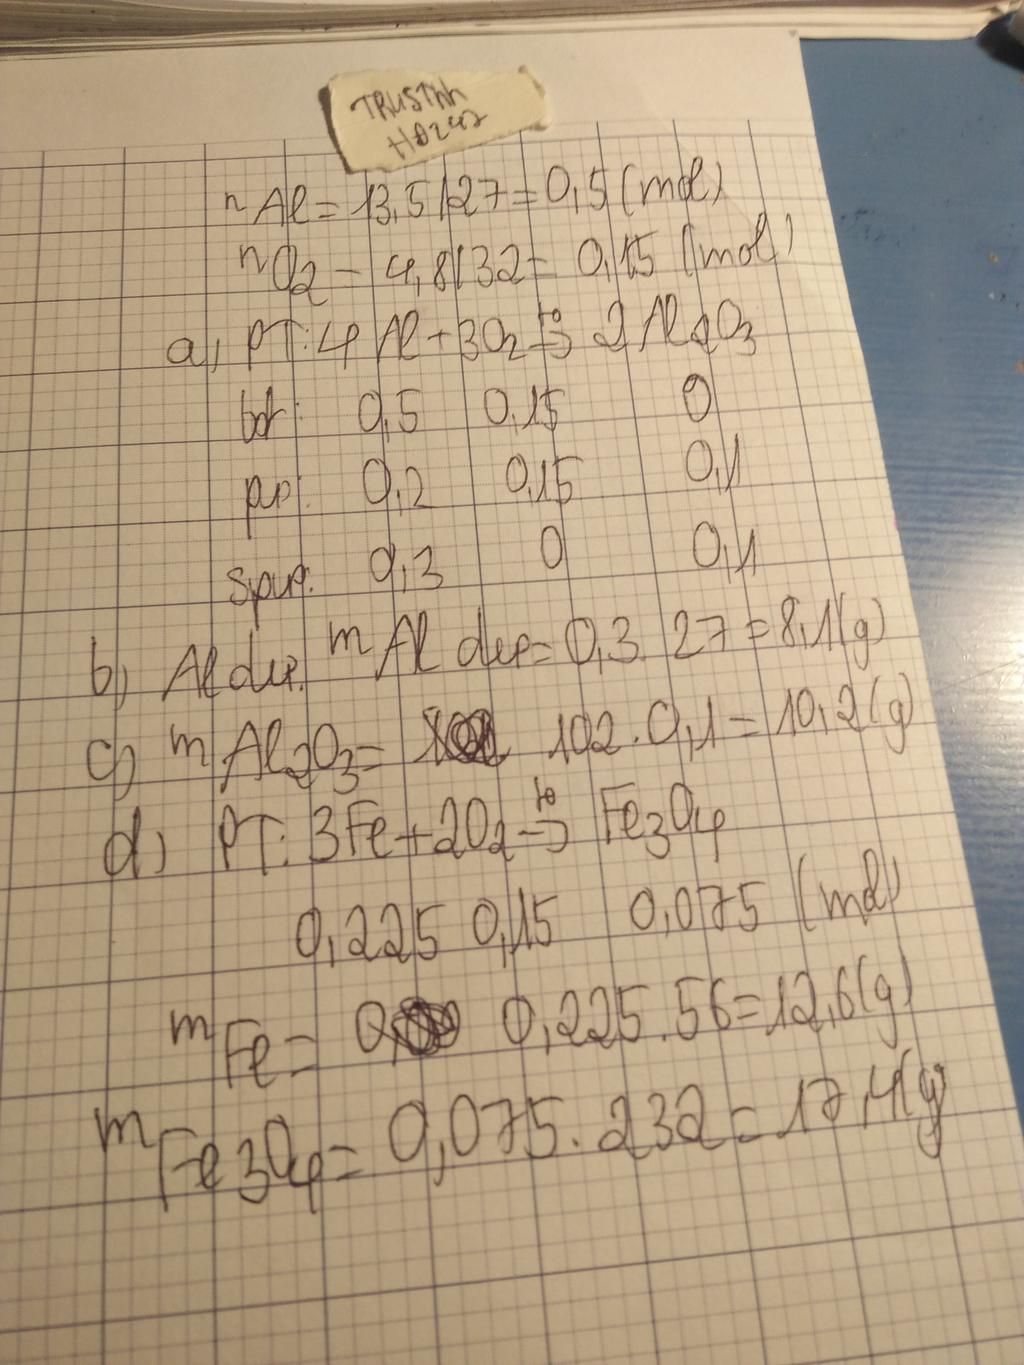 TRUSThh
HD242
nAl = 13,5/27 = 0,5 (mol)
nO2 = 4,8/32 = 0,15 (mol)
a) PT: 4Al + 3O2 -to-> 2Al2O3
bđ: 0,5 0,15 0
pư: 0,2 0,15 0,1
spư: 0,3 0 0,1
b) Al dư. mAl dư = 0,3. 27 = 8,1(g)
c) mAl2O3 = 102. 0,1 = 10,2(g)
d) PT: 3Fe + 2O2 -to-> Fe3O4
0,225 0,15 0,075 (mol)
mFe = 0,225. 56 = 12,6(g)
mFe3O4 = 0,075. 232 = 17,4(g)